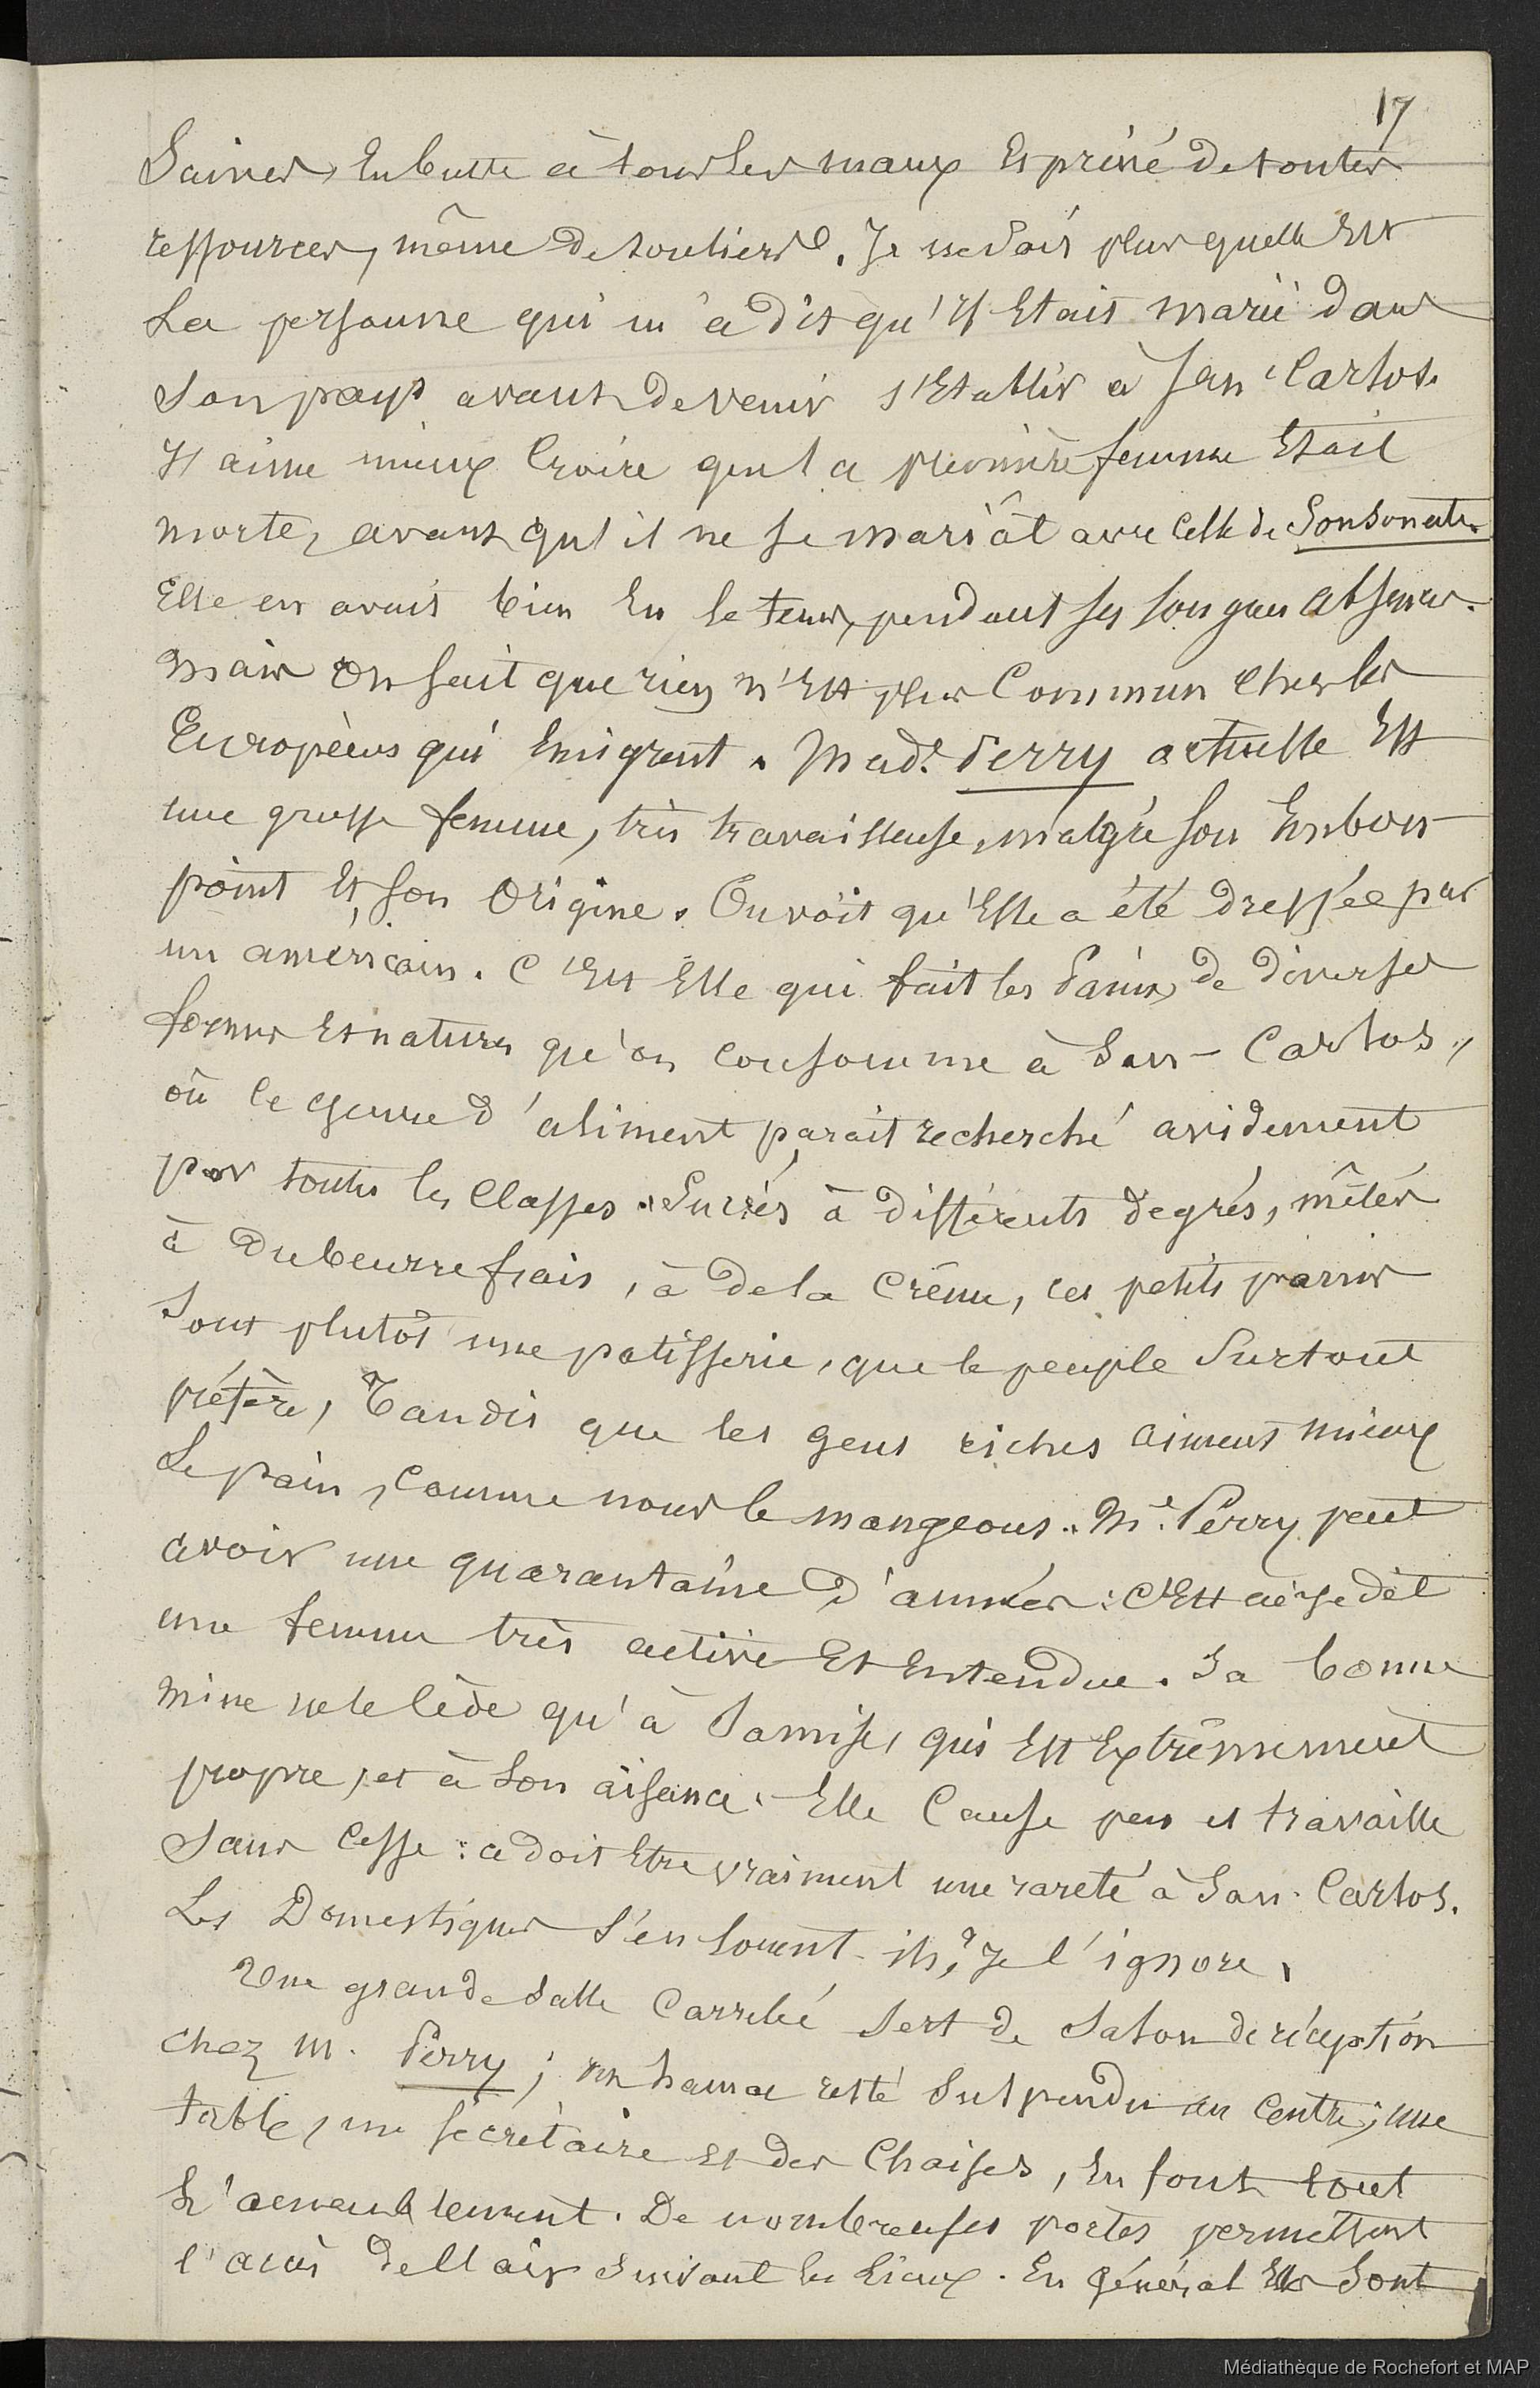 17
Saines, En butte à tous les maux Et privé de toutes
ressources, même de souliers. Je ne sais plus quelle Est
La personne qui m'a dit qu'il Etait marié dans
Son pays avant de venir s'Etablir à San Carlos.
J'aime mieux Croire que la première femme Etait
morte, avant qu'il ne se mariât avec Celle de Sonsonate.
Elle en avait bien Eu le tems, pendant ses longues absences.
Mais On sait que rien n'Est plus Commun Chez les
Européens qui Emigrent. Made. Perry actuelle Est
une grosse femme, très travailleuse, malgré son Embon
point Et son Origine. On voit qu'Elle a été dressée par
un américain. C'Est Elle qui fait les Pains, de diverses
formes Et natures qu'on consomme à San-Carlos,
où ce genre d'aliment parait recherché avidement
par toutes les Classes. Sucrés à différents degrés, mêlés
à du beurre frais, à de la Crême, ces petits pains
Sont plutôt une patisserie, que le peuple Surtout
préfère, Tandis que les gens riches aiment mieux
Le pain, Comme nous le mangeons. Me. Perry peut
avoir une quarantaine d'années: C'Est ai-je dit
une femme très active Et Entendue. Sa bonne
mine ne le cède qu'à Sa mise, qui Est Extrêmement
propre, et à Son aisance. Elle Cause peu et travaille
Sans Cesse: ce doit Etre vraiment une rareté à San-Carlos.
Les Domestiques S'en louent-ils? Je l'ignore.
Une grande Salle Carrelée Sert de Salon de réception
Chez M. Perry; un hamac reste Suspendu au Centre; une
table, un Sécrétaire et des Chaises, En font tout
L'ameublement. De nombreuses portes permettent
l'accès de l'air Suivant les Lieux. En général Elles Sont
Médiathèque de Rochefort et MAP